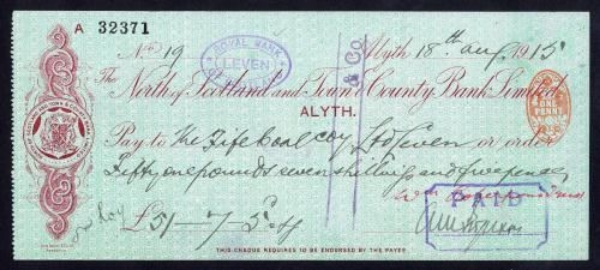 A 32371
No. 19 Alyth 18th Aug 1915
ROYAL BANK
LEVEN
& Co
The North of Scotland and Town & County Bank Limited
ALYTH.
ONE PENNY
Pay to The Fife Coal Coy Ltd Leven or order
Fifty one pounds seven shillings and five pence
PAID
£51-7-5
THIS CHEQUE REQUIRES TO BE ENDORSED BY THE PAYEE